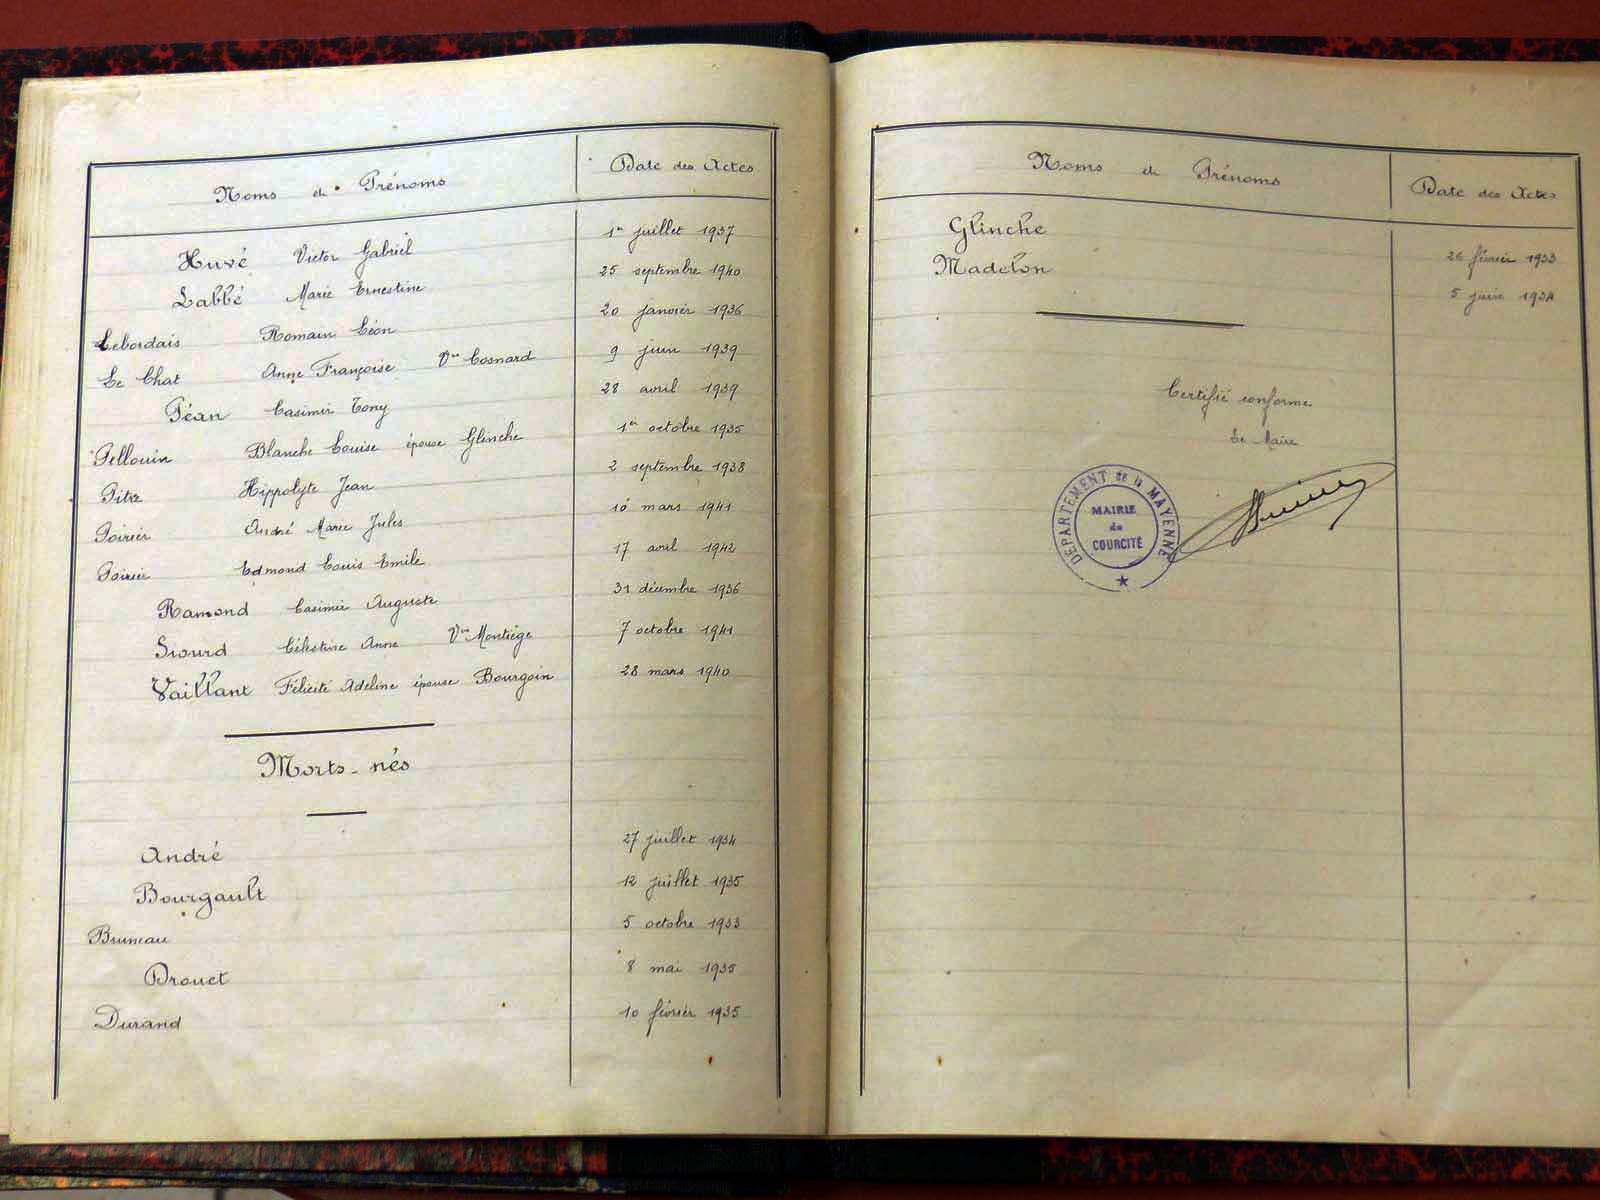 Noms et Prénoms Date des Actes
Huvé Victor Gabriel 1er juillet 1937
Labbé Marie Ernestine 25 septembre 1940
Lebordais Romain Léon 20 janvier 1936
Le Chat Anne Françoise Vve Cosnard 9 juin 1939
Péan Casimir Tony 28 avril 1939
Pellouin Blanche Louise épouse Glinche 1er octobre 1935
Pitre Hippolyte Jean 2 septembre 1938
Poirier André Marie Jules 10 mars 1941
Poirier Edmond Louis Emile 17 avril 1942
Ramond Casimir Auguste 31 décembre 1936
Siourd Célestine Anne Vve Montiège 7 octobre 1941
Vaillant Félicité Adeline épouse Bourgoin 28 mars 1940
Morts-nés
André 27 juillet 1934
Bourgault 12 juillet 1935
Bruneau 5 octobre 1933
Drouet 8 mai 1935
Durand 10 février 1935
Noms et Prénoms Date des Actes
Glinche 26 février 1933
Madelon 5 juin 1934
Certifié conforme
Le Maire
DÉPARTEMENT de la MAYENNE
MAIRIE
de
COURCITÉ